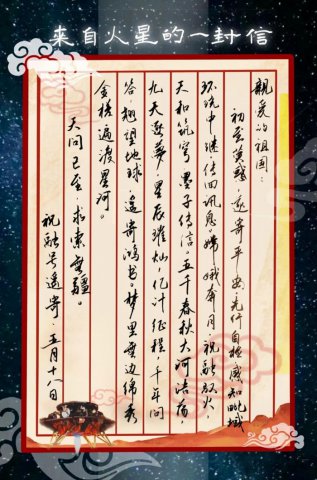 来自火星的一封信
親爱的祖国：
初至荧惑，遥寄平安。先行自检感知
环绕中继，传回讯息。嫦娥奔月，祝融取火
天和筑穹，墨子传信。五千春秋大河浩荡，
九天逐梦，星辰璀灿，亿计征程，千年问
答，翘望地球，遥寄鸿书。梦里云边绵秀
金槎遍渡星河。
天问已至 求索無疆。
祝融号遥寄·五月十八日